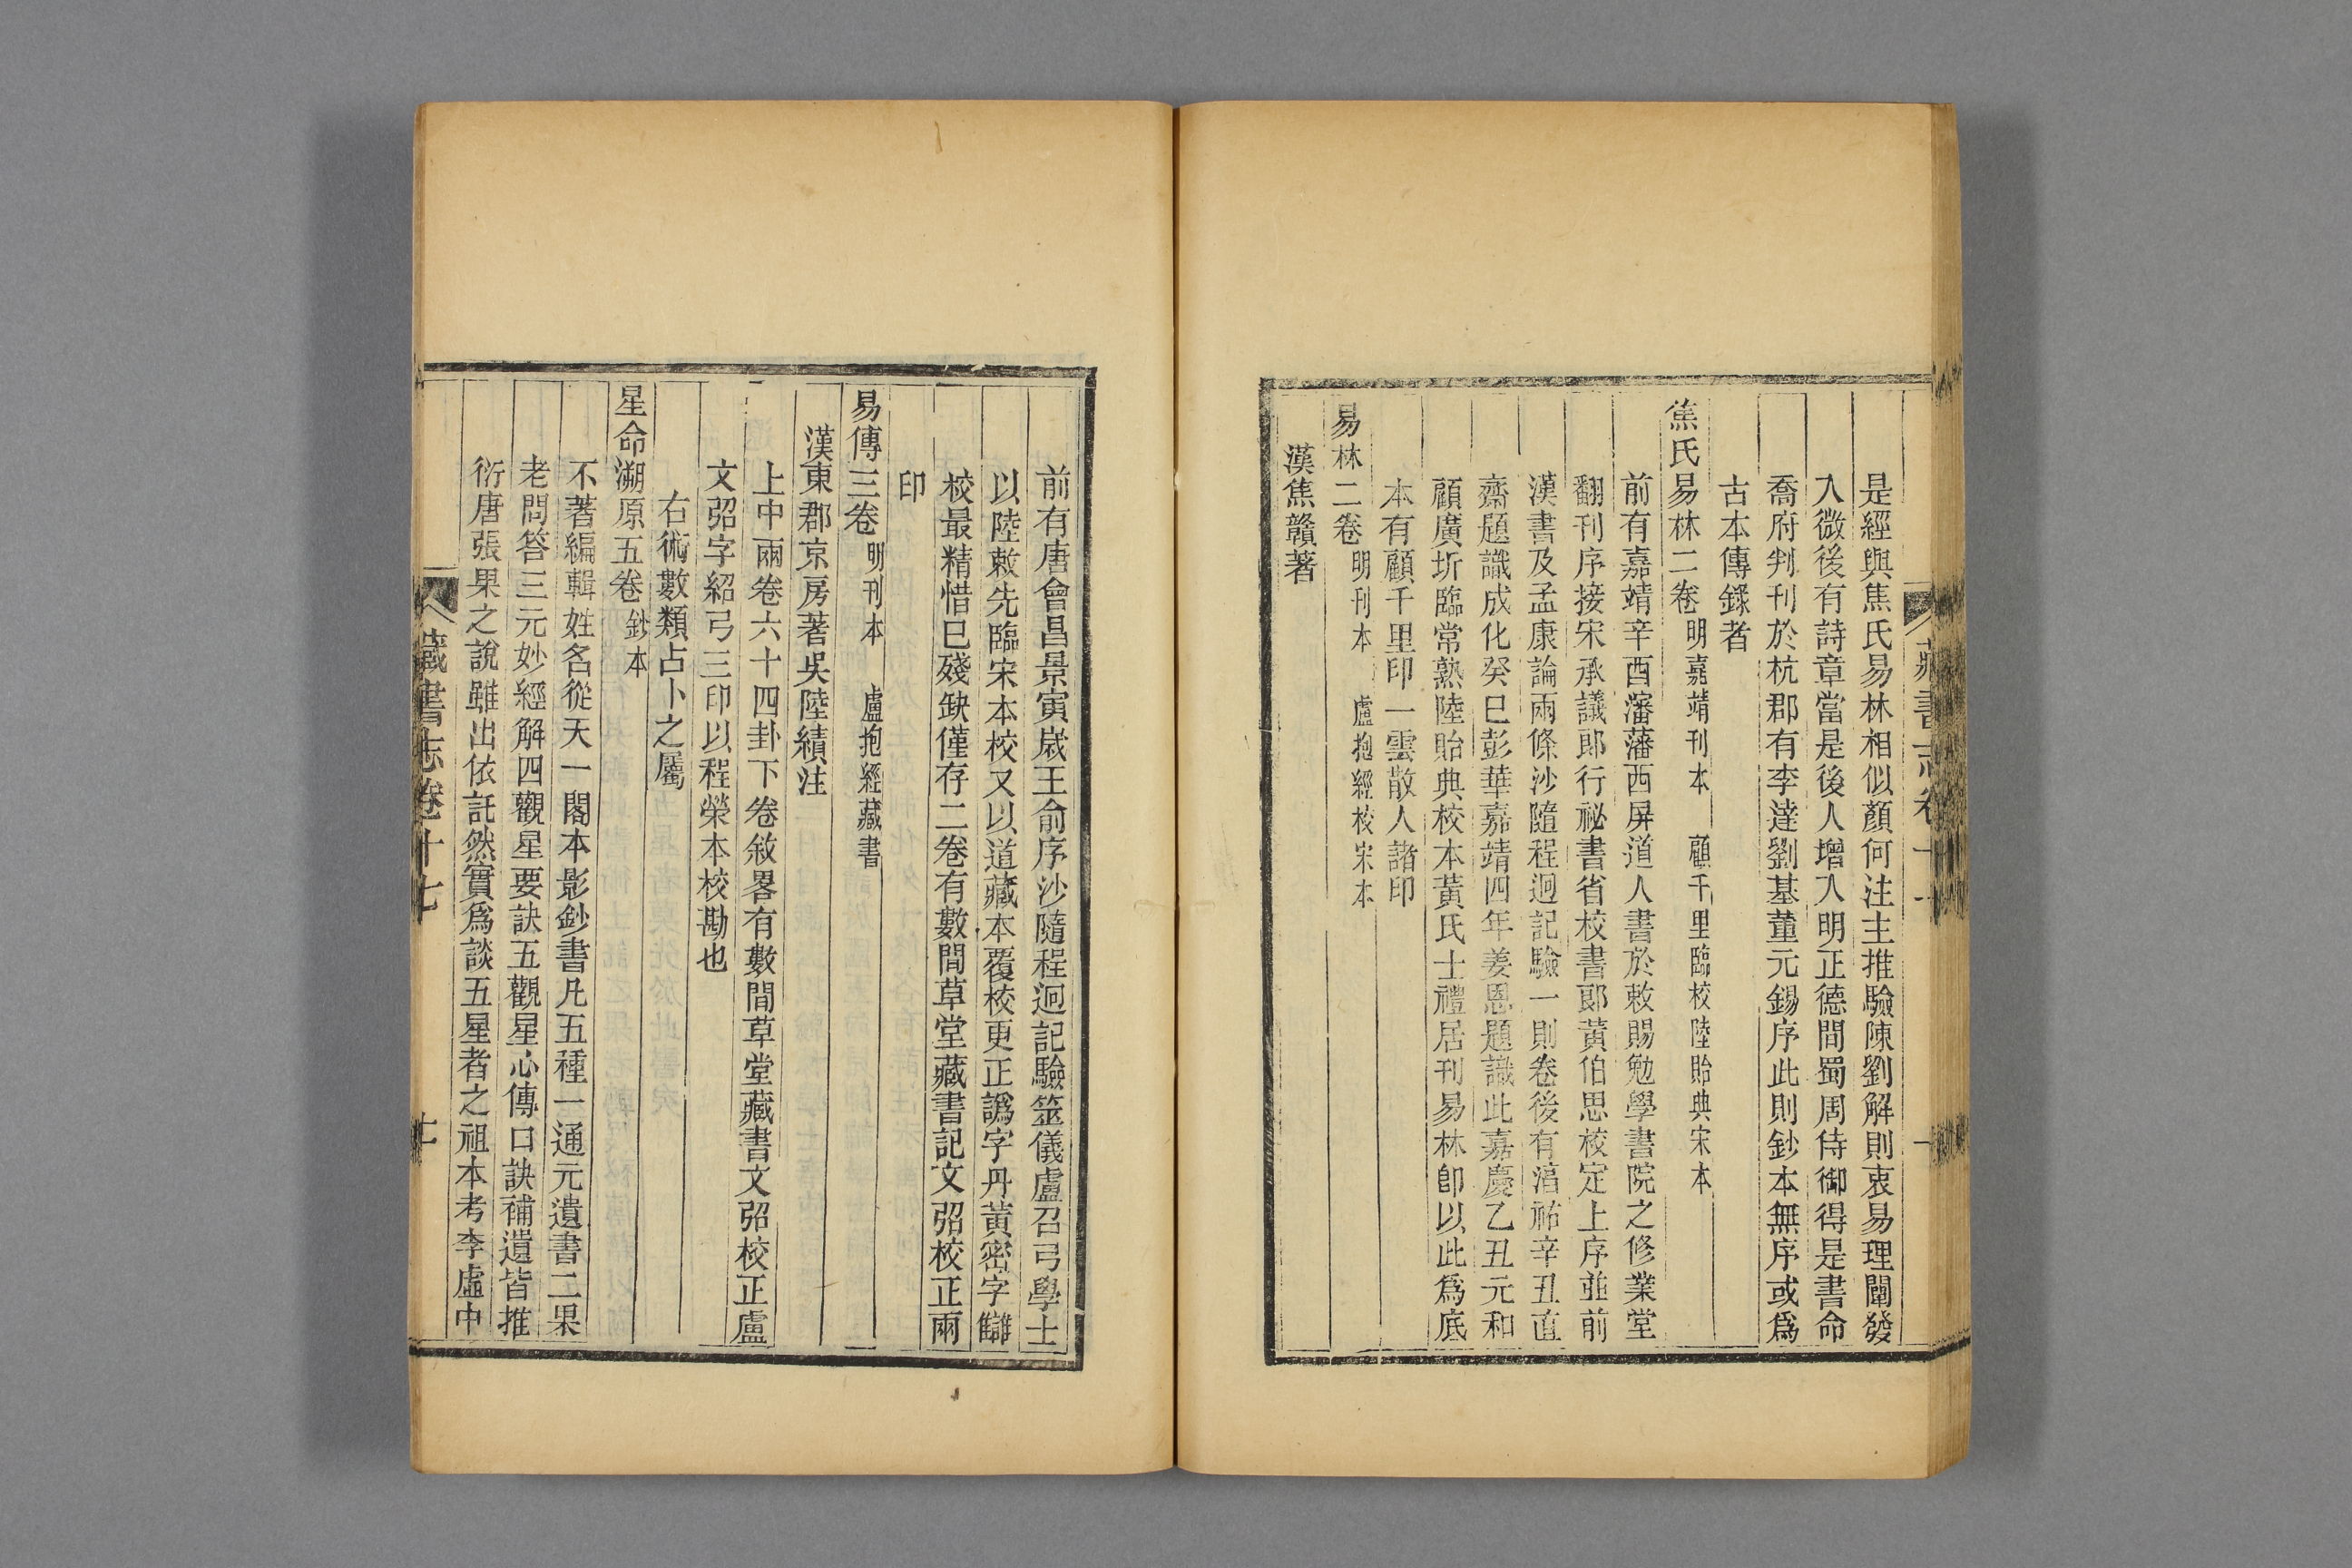 藏書志卷十
是經與焦氏易林相似顏何注主推驗陳劉解則衷易理闡發
入微後有詩章當是後人增入明正德間蜀周侍御得是書命
喬府判刊於杭郡有李達劉基董元錫序此則鈔本無序或爲
古本傳錄者
焦氏易林二卷 明嘉靖刊本 顧千里臨校陸貽典宋本
前有嘉靖辛酉瀋藩西屏道人書於敕賜勉學書院之修業堂
翻刊序接宋承議郎行祕書省校書郎黃伯思校定上序並前
漢書及孟康論兩條沙隨程迥記驗一則卷後有淳祐辛丑直
齋題識成化癸巳彭華嘉靖四年姜恩題識此嘉慶乙丑元和
顧廣圻臨常熟陸貽典校本黃氏士禮居刊易林卽以此爲底
本有顧千里印一雲散人諸印
易林二卷 明刊本 盧抱經校宋本
漢焦贛著
前有唐會昌景寅歲王俞序沙隨程迥記驗筮儀盧召弓學士
以陸敕先臨宋本校又以道藏本覆校更正譌字丹黃密字讎
校最精惜已殘缺僅存二卷有數間草堂藏書記文弨校正兩
印
易傳三卷 明刊本 盧抱經藏書
漢東郡京房著吳陸績注
上中兩卷六十四卦下卷敘畧有數間草堂藏書文弨校正盧
文弨字紹弓三印以程榮本校勘也
右術數類占卜之屬
星命溯原五卷 鈔本
不著編輯姓名從天一閣本影鈔書凡五種一通元遺書二果
老問答三元妙經解四觀星要訣五觀星心傳口訣補遺皆推
衍唐張果之說雖出依託然實爲談五星者之祖本考李虛中
藏書志卷十七